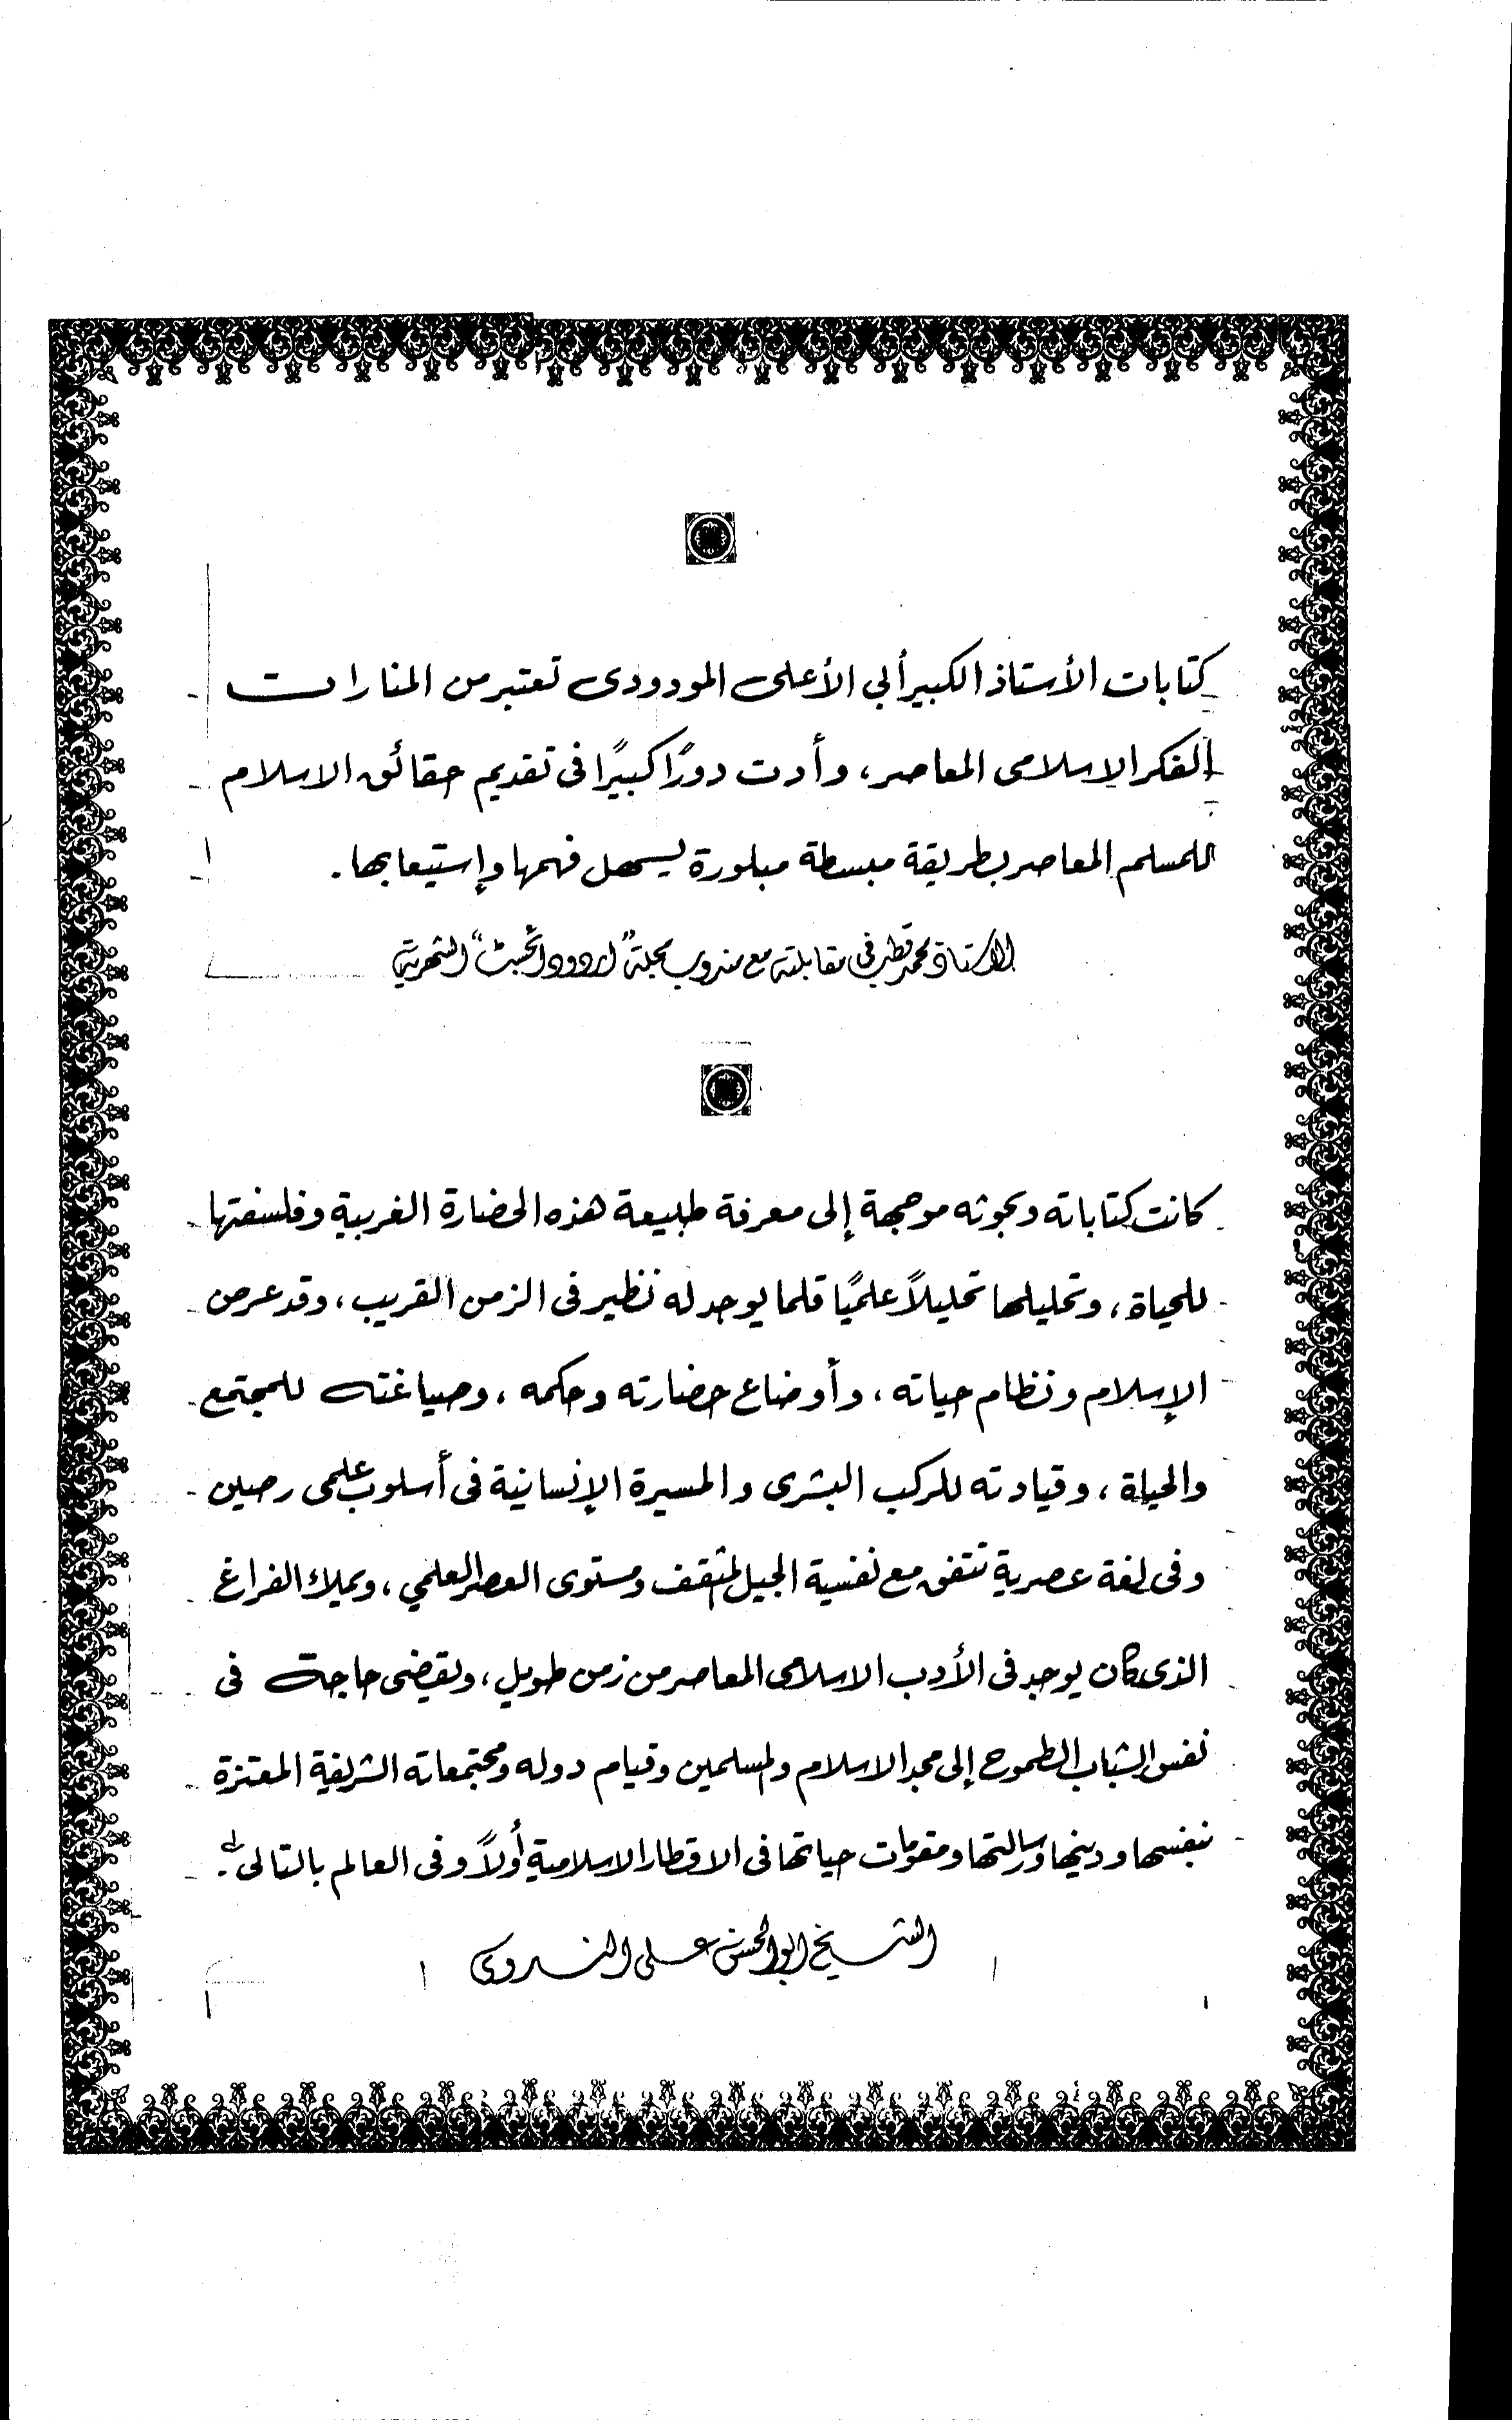 كتابات الأستاذ الكبير أبي الأعلى المودودى تعتبر من المنارات
الفكر الاسلامى المعاصر، وأدت دورًا كبيرًا فى تقديم حقائق الاسلام
للمسلم المعاصر بطريقة مبسطة مبلورة يسهل فهمها وإستيعابها.
الاستاذ محمد قطب فى مقابلته مع مندوب مجلة "اردو دائجست" الشهرية
كانت كتاباته وبحوثه موجهة إلى معرفة طبيعة هذه الحضارة الغربية وفلسفتها
للحياة، وتحليلها تحليلاً علميًا قلما يوجد له نظير فى الزمن القريب، وقد عرض
الإسلام ونظام حياته، وأوضاع حضارته وحكمه، وصياغته للمجتمع
والحياة، وقيادته للركب البشرى والمسيرة الإنسانية فى أسلوب علمى رصين
وفى لغة عصرية تتفق مع نفسية الجيل المثقف ومستوى العصر العلمي، ويملاء الفراغ
الذى كان يوجد فى الأدب الاسلامى المعاصر من زمن طويل، ويقضى حاجة فى
نفس الشباب الطموح إلى مجد الاسلام والمسلمين وقيام دوله ومجتمعاته الشريفة المعتزة
بنفسها ودينها ورسالتها ومقومات حياتها فى الاقطار الاسلامية أولاً وفى العالم بالتالى.
الشيخ ابو الحسن على الندوى